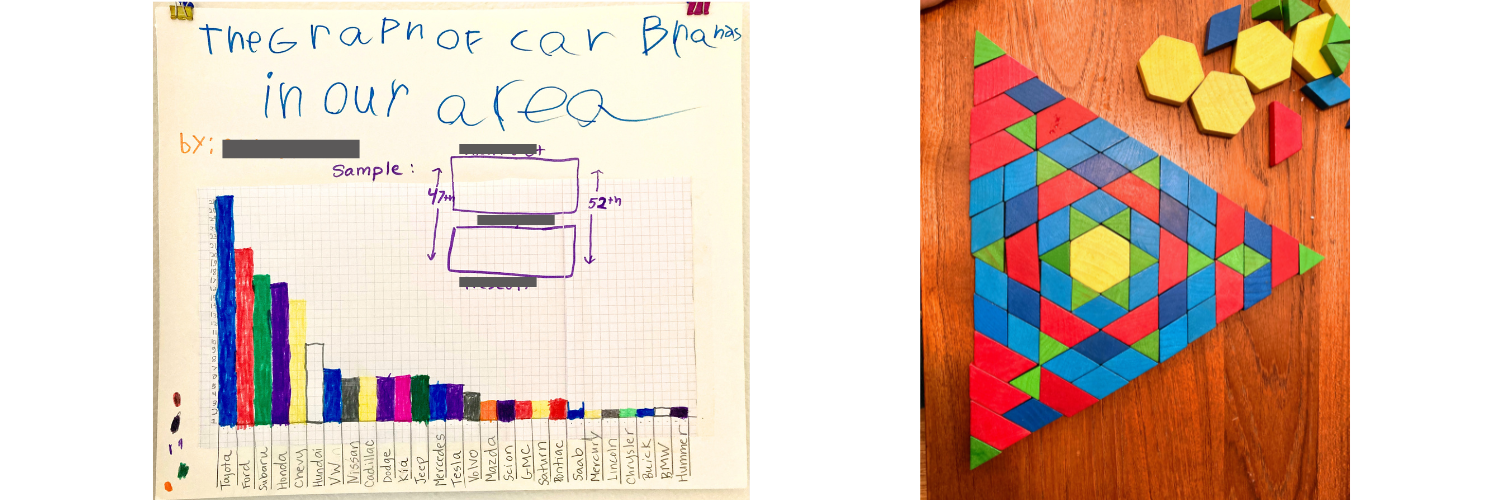 The Graph of car Brands
in our area
by:
Sample:
47th
52th
Tayota
Ford
Subaru
Honda
Chevy
Hundai
VW
Nissan
Cadillac
Dodge
Kia
Jeep
Mercedes
Tesla
Volvo
Mazda
Scion
GMC
Saturn
Pontiac
Saab
Mercury
Lincoln
Chrysler
Buick
BMW
Hummer